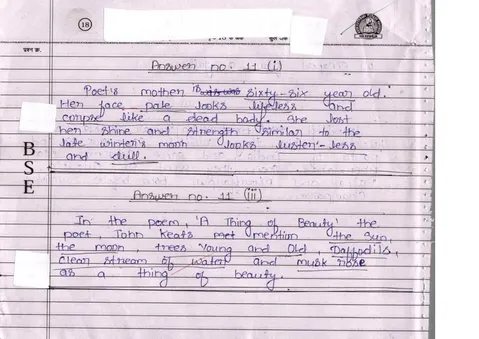 18
प्रश्न क्र.
Answer no. 11 (i)
Poet's mother is sixty-six year old.
Her face pale looks lifeless and
corpse like a dead body. She lost
her shine and strength similar to the
late winter's moon looks luster-less
and dull.
BSE
Answer no. 11 (iii)
In the poem, 'A Thing of Beauty' the
poet, John Keats poet mention the Sun,
the moon, trees Young and Old, Daffodils,
clear stream of water and musk rose
as a thing of beauty.